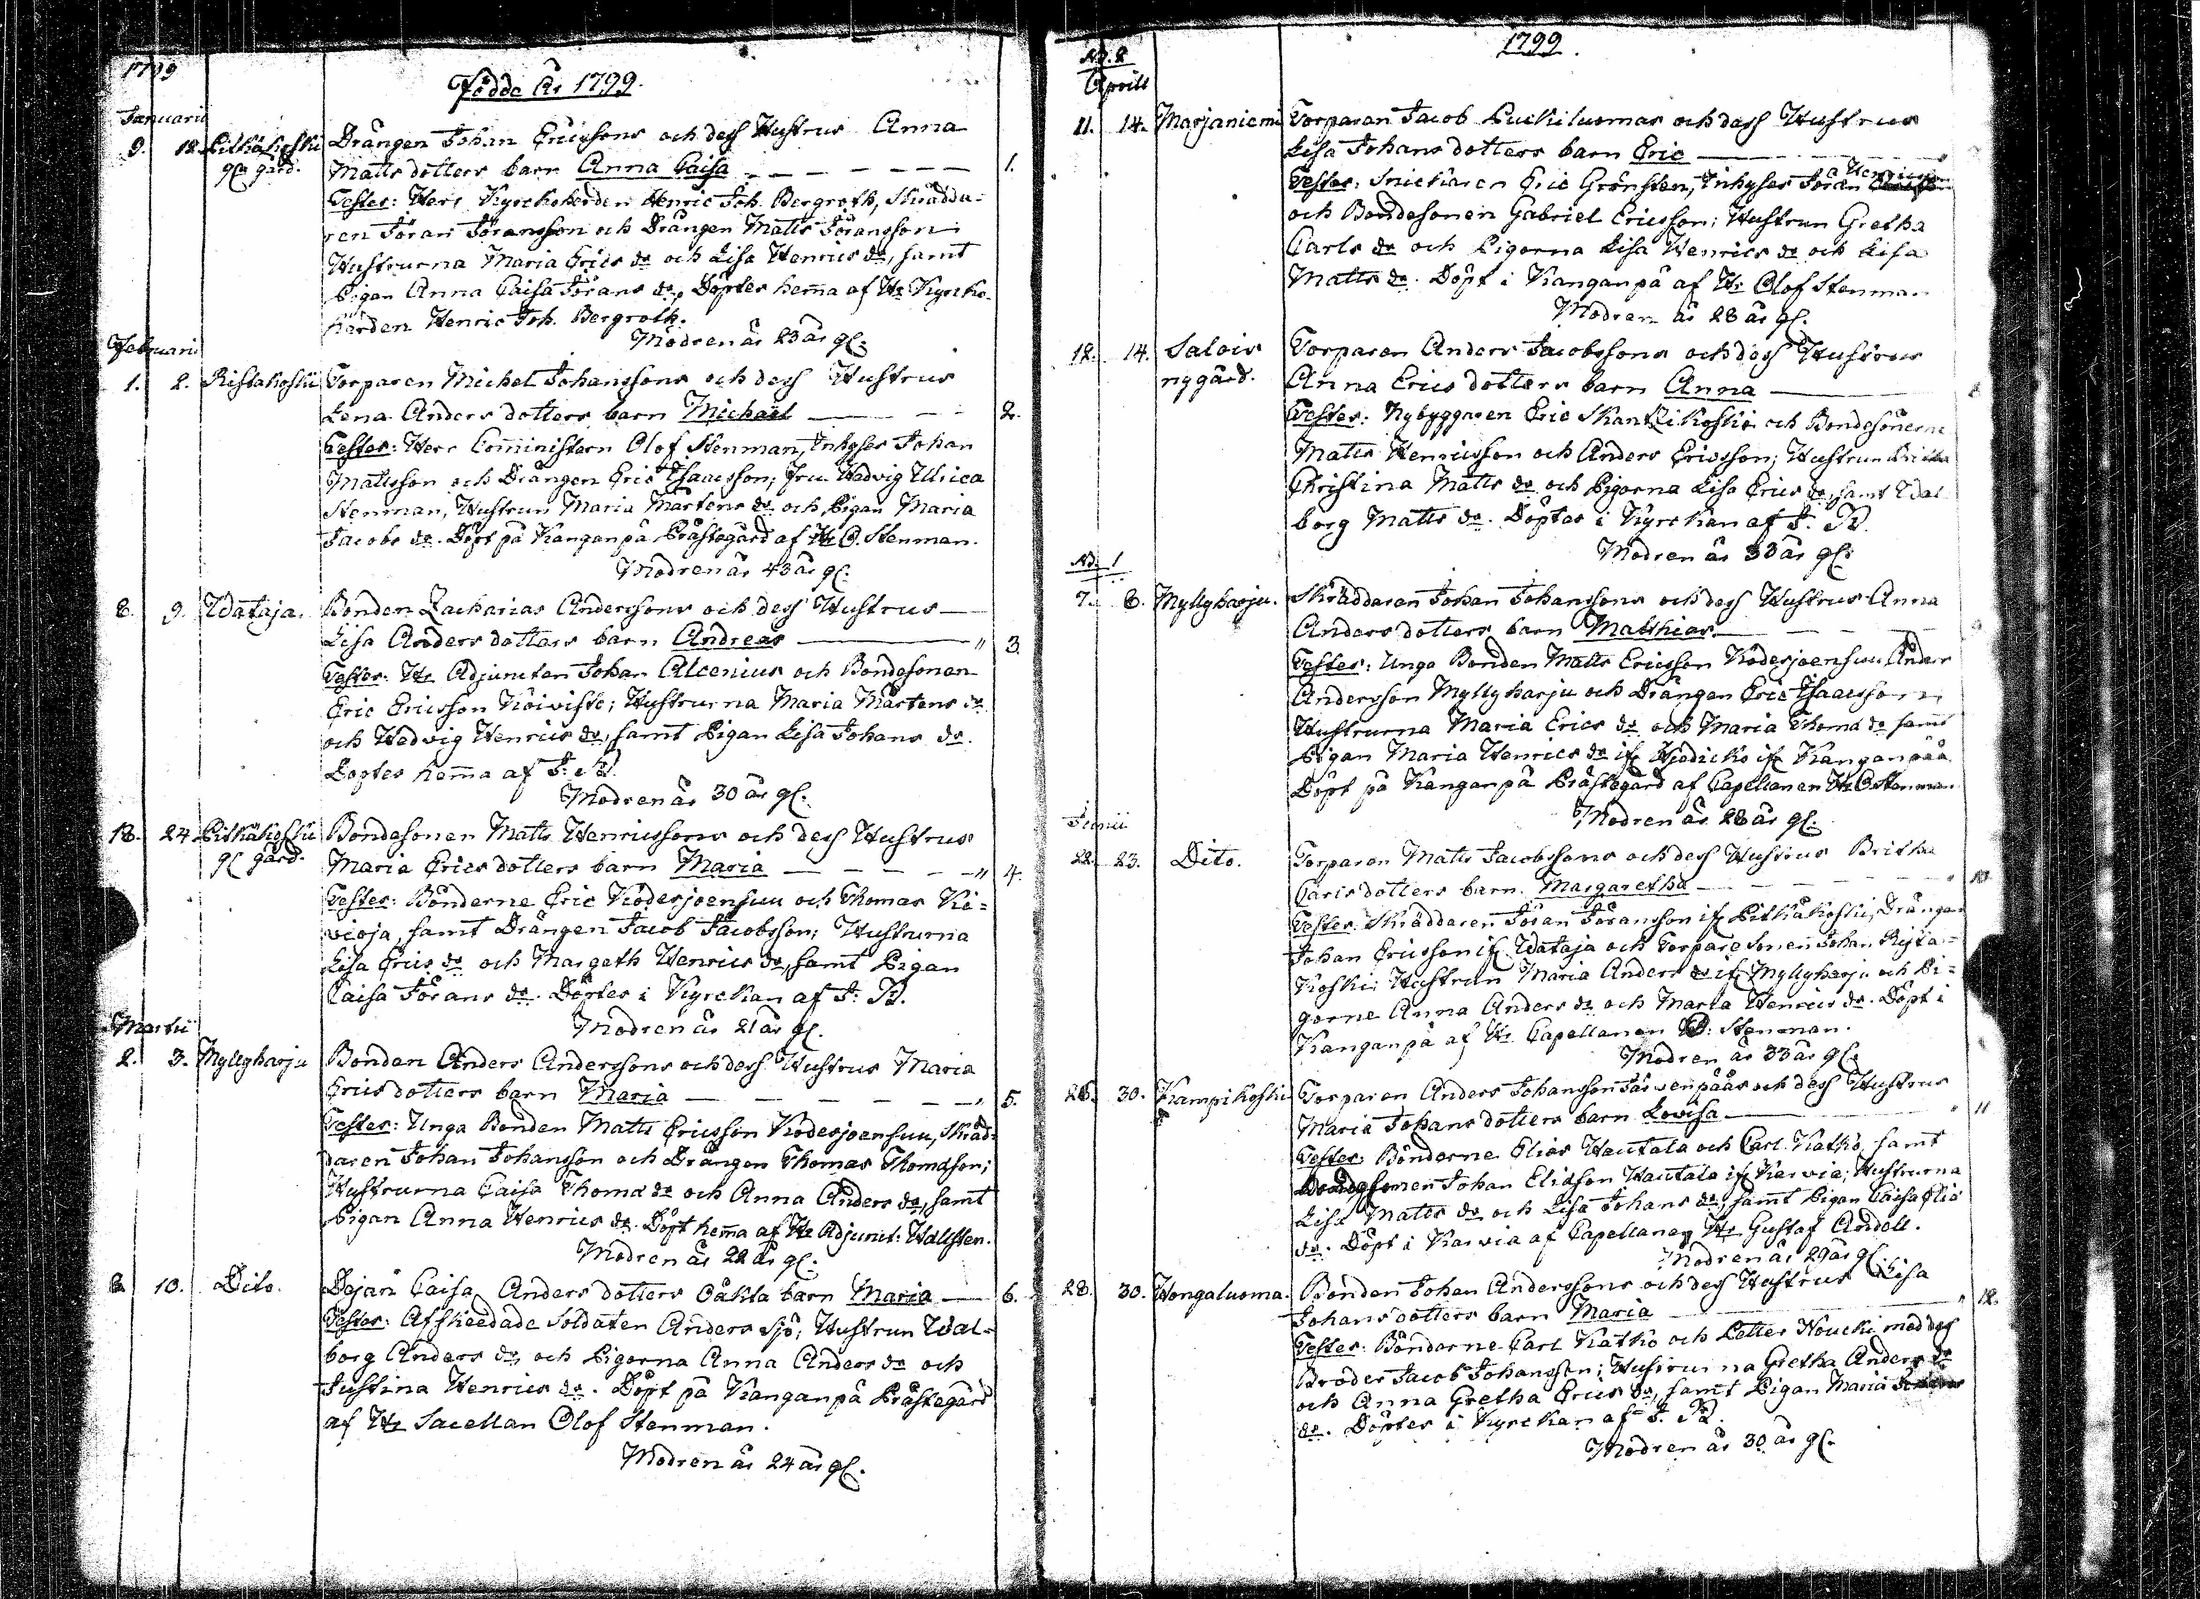 1799
Födde År 1799.
Januarii
9. 12. Pitkäkoski Drängen Johan Ericssons och dess Hustrus Anna
gl. gård. Matts dotters barn Anna Caisa 1.
Testes: Herr Kyrckoherden Henric Joh. Bergroth, Skrädda-
ren Jöran Jöransson och Drängen Matts Jöransson;
Hustrurna Maria Erics dr och Lisa Henrics dr, samt
Pigan Anna Caisa Jörans dr. Döptes hema af Hr Kyrcko-
herden Henric Joh. Bergroth.
Modren är 23 år gl.
Februarii
1. 2. Ristakoski Torparen Michel Johanssons och dess Hustrus
Lena Anders dotters barn Michaël 2.
Testes: Herr Cominstern Olof Stenman, Inhyses Johan
Mattsson och Drängen Eric Isaacsson; Fru Hedvig Ulrica
Stenman, Hustrun Maria Mårtens dr och Pigan Maria
Jacobs dr. Döpt på Kanganpä Prästegård af Hr O. Stenman.
Modren är 43 år gl.
8. 9. Wataja. Bonden Zacharias Anderssons och dess Hustrus
Lisa Anders dotters barn Andreas " 3.
Testes: Hr Adjuncten Johan Alcenius och Bondesonen
Eric Ericsson Koivisto; Hustrurna Maria Mårtens dr
och Hedvig Henrics dr, samt Pigan Lisa Johans dr.
Döptes hema af J. W.
Modren är 30 år gl.
18. 24. Pitkäkoski Bondesonen Matts Henricssons och dess Hustrus
gl. gård. Maria Erics dotters barn Maria " 4.
Testes: Bönderne Eric Kodesjoensuu och Thomas Ki-
vioja, samt Drängen Jacob Jacobsson; Hustrurna
Lisa Erics dr och Margeth Henrics dr, samt Pigan
Caisa Jörans dr. Döptes i Kyrckan af J. W.
Modren är 21 år gl.
Martii
2. 3. Myllyharju Bonden Anders Anderssons och dess Hustrus Maria
Erics dotters barn Maria " 5.
Testes: Unga Bonden Matts Ericsson Kodesjoensuu, Skräd-
daren Johan Johansson och Drängen Thomas Thomasson;
Hustrurna Caisa Thomæ dr och Anna Anders dr, samt
Pigan Anna Henrics dr. Döpt hema af Hr Adjunct: Hallsten.
Modren är 22 år gl.
10. Dito. Dejan Caisa Anders dotters oäkta barn Maria 6.
Testes: Afskeedade Soldaten Anders Sjö; Hustrun Wal-
borg Anders dr och Pigorna Anna Anders dr och
Justina Henrics dr. Döpt på Kanganpä Prästegård
af Hr Sacellan Olof Stenman.
Modren är 24 år gl.
1799.
No. 2
Aprill
11. 14. Marjaniemi Torparen Jacob Luckiluomas och dess Hustrus
Lisa Johans dotters barn Eric
Testes: Snickaren Eric Grönsten, Inhyses Jöran Henricsson
och Bondesonen Gabriel Ericsson; Hustrun Gretha
Carls dr och Pigorna Lisa Henrics dr och Lisa
Matts dr. Döpt i Kanganpä af Hr Olof Stenman.
Modren är 28 år gl.
12. 14. Salois Torparen Anders Jacobssons och dess Hustrus
nygård. Anna Erics dotters barn Anna
Testes: Nybyggaren Eric Skantzikoski och Bondesönerne
Matts Henricsson och Anders Ericsson; Hustrun Britha
Christina Matts dr och Pigorna Lisa Erics dr, samt Wal-
borg Matts dr. Döptes i Kyrckan af J. W.
Modren är 33 år gl.
No. 1
7. 8. Myllyharju. Skräddaren Johan Johanssons och dess Hustrus Anna
Anders dotters barn Matthias
Testes: Unga Bonden Matts Ericsson Kodesjoensuu, Anders
Andersson Myllyharju och Drängen Eric Isaacsson;
Hustrurna Maria Erics dr och Maria Thomæ dr samt
Pigan Maria Henrics dr ifr Kanganpää.
Döpt på Kanganpä Prästegård af Capellanen Hr O. Stenman.
Modren är 28 år gl.
Junii
22. 23. Dito. Torparen Matts Jacobssons och dess Hustrus Britha
Carls dotters barn Margaretha " 10
Testes: Skräddaren Jöran Jöransson ifr Pitkäkoski, Drängen
Johan Ericsson ifr Wataja och Torparesonen Johan Rista-
koski; Hustrun Maria Anders dr ifr Myllyharju och Pi-
gorne Anna Anders dr och Maria Henrics dr. Döpt i
Kanganpä af Hr Capellanen O: Stenman.
Modren är 33 år gl.
26. 30. Kampikoski Torparen Anders Johansson Järvenpääs och dess Hustrus
Maria Johans dotters barn Lovisa " 11
Testes: Bönderne Elias Hautala och Carl Katko, samt
Bondesonen Johan Eliasson Hautala ifr Karvia; Hustrurna
Lisa Matts dr och Lisa Johans dr, samt Pigan Caisa Eliæ
dr. Döpt i Karvia af Capellanen Hr Gustaf Andell.
Modren är 29 år gl.
28. 30. Hongaluoma. Bonden Johan Anderssons och dess Hustrus Lisa
Johans dotters barn Maria " 12.
Testes: Bönderne Carl Katko och Petter Houcki med dess
Broder Jacob Johansson; Hustrurna Gretha Anders dr
och Anna Gretha Erics dr, samt Pigan Maria
dr. Döptes i Kyrckan af J. W.
Modren är 30 år gl.